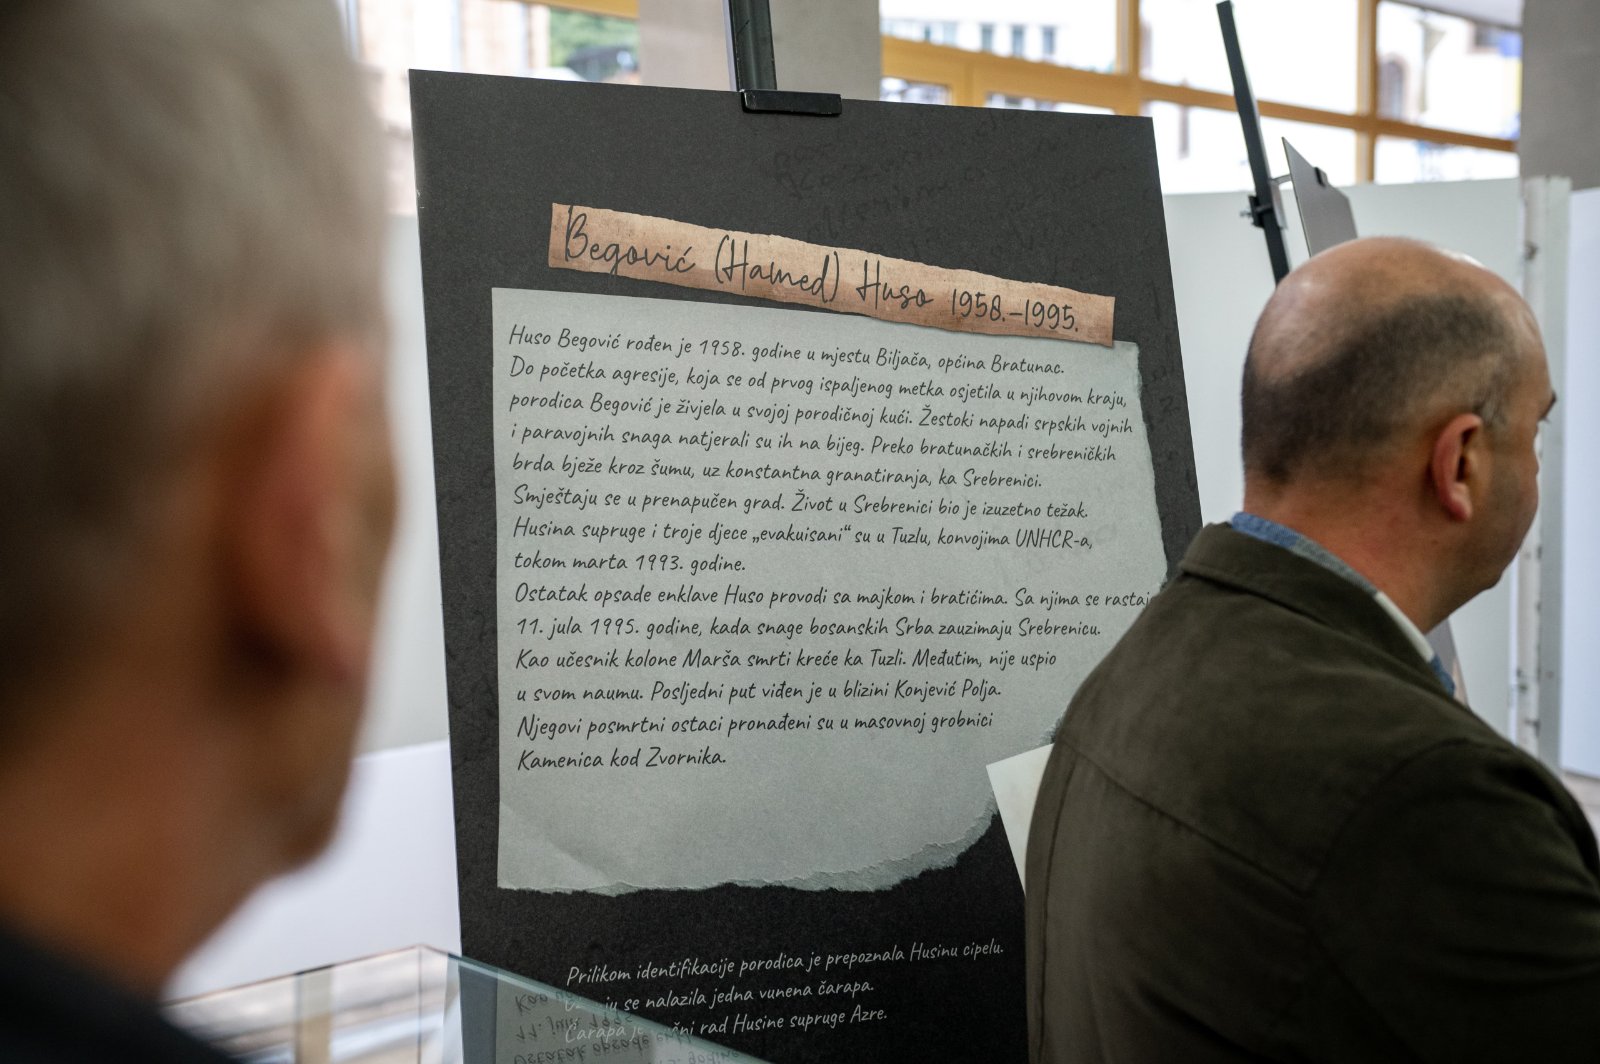 Begović (Hamed) Huso 1958.-1995.
Huso Begović rođen je 1958. godine u mjestu Biljača, općina Bratunac.
Do početka agresije, koja se od prvog ispaljenog metka osjetila u njihovom kraju,
porodica Begović je živjela u svojoj porodičnoj kući. Žestoki napadi srpskih vojnih
i paravojnih snaga natjerali su ih na bijeg. Preko bratunačkih i srebreničkih
brda bježe kroz šumu, uz konstantna granatiranja, ka Srebrenici.
Smještaju se u prenapučen grad. Život u Srebrenici bio je izuzetno težak.
Husina supruge i troje djece „evakuisani“ su u Tuzlu, konvojima UNHCR-a,
tokom marta 1993. godine.
Ostatak opsade enklave Huso provodi sa majkom i bratićima. Sa njima se rastaj
11. jula 1995. godine, kada snage bosanskih Srba zauzimaju Srebrenicu.
Kao učesnik kolone Marša smrti kreće ka Tuzli. Međutim, nije uspio
u svom naumu. Posljedni put viđen je u blizini Konjević Polja.
Njegovi posmrtni ostaci pronađeni su u masovnoj grobnici
Kamenica kod Zvornika.
Prilikom identifikacije porodica je prepoznala Husinu cipelu.
se nalazila jedna vunena čarapa.
Čarapa je rad Husine supruge Azre.